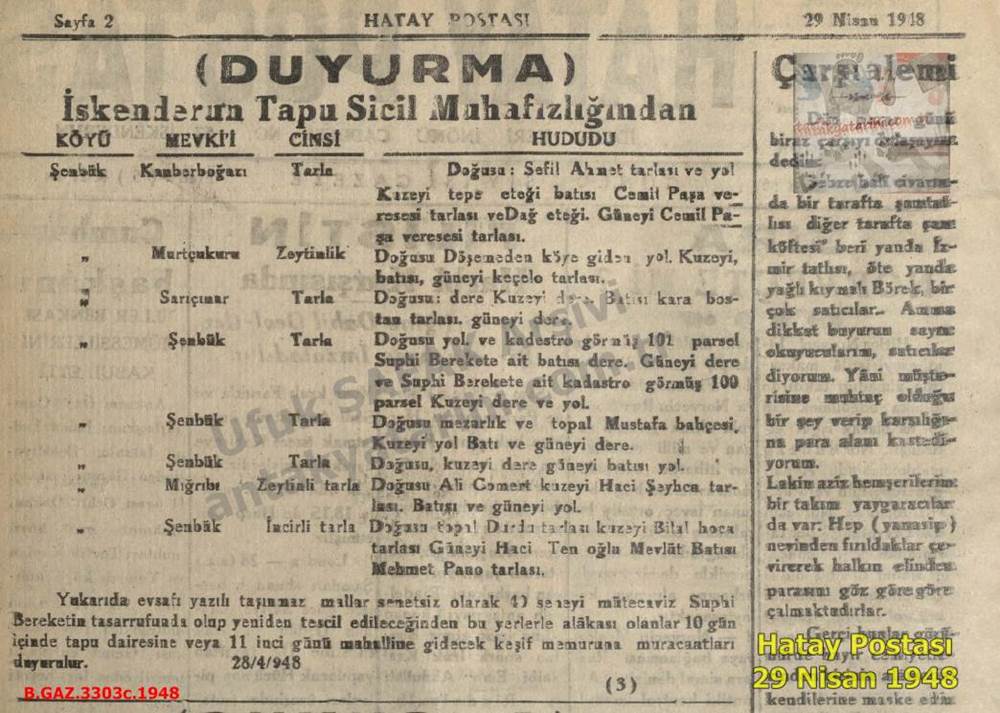 Sayfa 2
HATAY POSTASI
29 Nisan 1948
(DUYURMA)
İskenderun Tapu Sicil Muhafızlığından
KÖYÜ MEVKİ'İ CİNSİ HUDUDU
Şenbük Kanberboğazı Tarla Doğusu: Sefil Ahmet tarlası ve yol
Kuzeyi tepe eteği batısı Cemil Paşa ve-
resesi tarlası veDağ eteği. Güneyi Cemil Pa-
şa veresesi tarlası.
„ Murtçukuru Zeytinlik Doğusu Döşemeden köye giden yol. Kuzeyi,
batısı, güneyi keçelo tarlası.
„ Sarıçınar Tarla Doğusu: dere Kuzeyi dere. Batısı kara bos-
tan tarlası. güneyi dere.
„ Şenbük Tarla Doğusu yol. ve kadastro görmüş 101 parsel
Suphi Berekete ait batısı dere. Güneyi dere
ve Suphi Berekete ait kadastro görmüş 100
parsel Kuzeyi dere ve yol.
„ Şenbük Tarla Doğusu mezarlık ve topal Mustafa bahçesi,
Kuzeyi yol Batı ve güneyi dere.
„ Şenbük Tarla Doğusu, kuzeyi dere güneyi batısı yol.
„ Mığrıbı Zeytinli tarla Doğusu Ali Comert kuzeyi Haci Şeyhca tar-
lası. Batısı ve güneyi yol.
„ Şenbük İncirli tarla Doğusu topal Durdu tarlası kuzeyi Bilal hoca
tarlası Güneyi Haci Ten oğlu Mevlût Batısı
Mehmet Pano tarlası.
Yukarıda evsafı yazılı taşınmaz mallar senetsiz olarak seneyi mütecaviz Suphi
Bereketin tasarrufunda olup yeniden tescil edileceğinden bu yerlerle alâkası olanlar 10 gün
içinde tapu dairesine veya 11 inci günü mahalline gidecek keşif memuruna muracaatları
duyurulur. 28/4/948
(3)
Çarşıalemi
günü
biraz çarşıyı
dedim.
civarın-
da bir tarafta şamtat-
lısı diğer tarafta çam
köftesi" beri yanda İz-
mir tatlısı, öte yanda
yağlı kıymalı Börek, bir
çok satıcılar. Amma
dikkat buyurun sayın
okuyucularım, satıcılar
diyorum. Yâni müşte-
risine muhtaç olduğu
bir şey verip karşılığı-
na para alanı kastedi-
yorum.
Lakin aziz hemşerilerim
bir takım yaygaracılar
da var: Hep (yanasip)
nevinden fırıldaklar çe-
virerek halkın elinden
parasını göz göre göre
çalmaktadırlar.
Gerçi bunlar
kendilerine maske edin
Ufuk arşivi
Hatay Postası
29 Nisan 1948
B.GAZ.3303c.1948